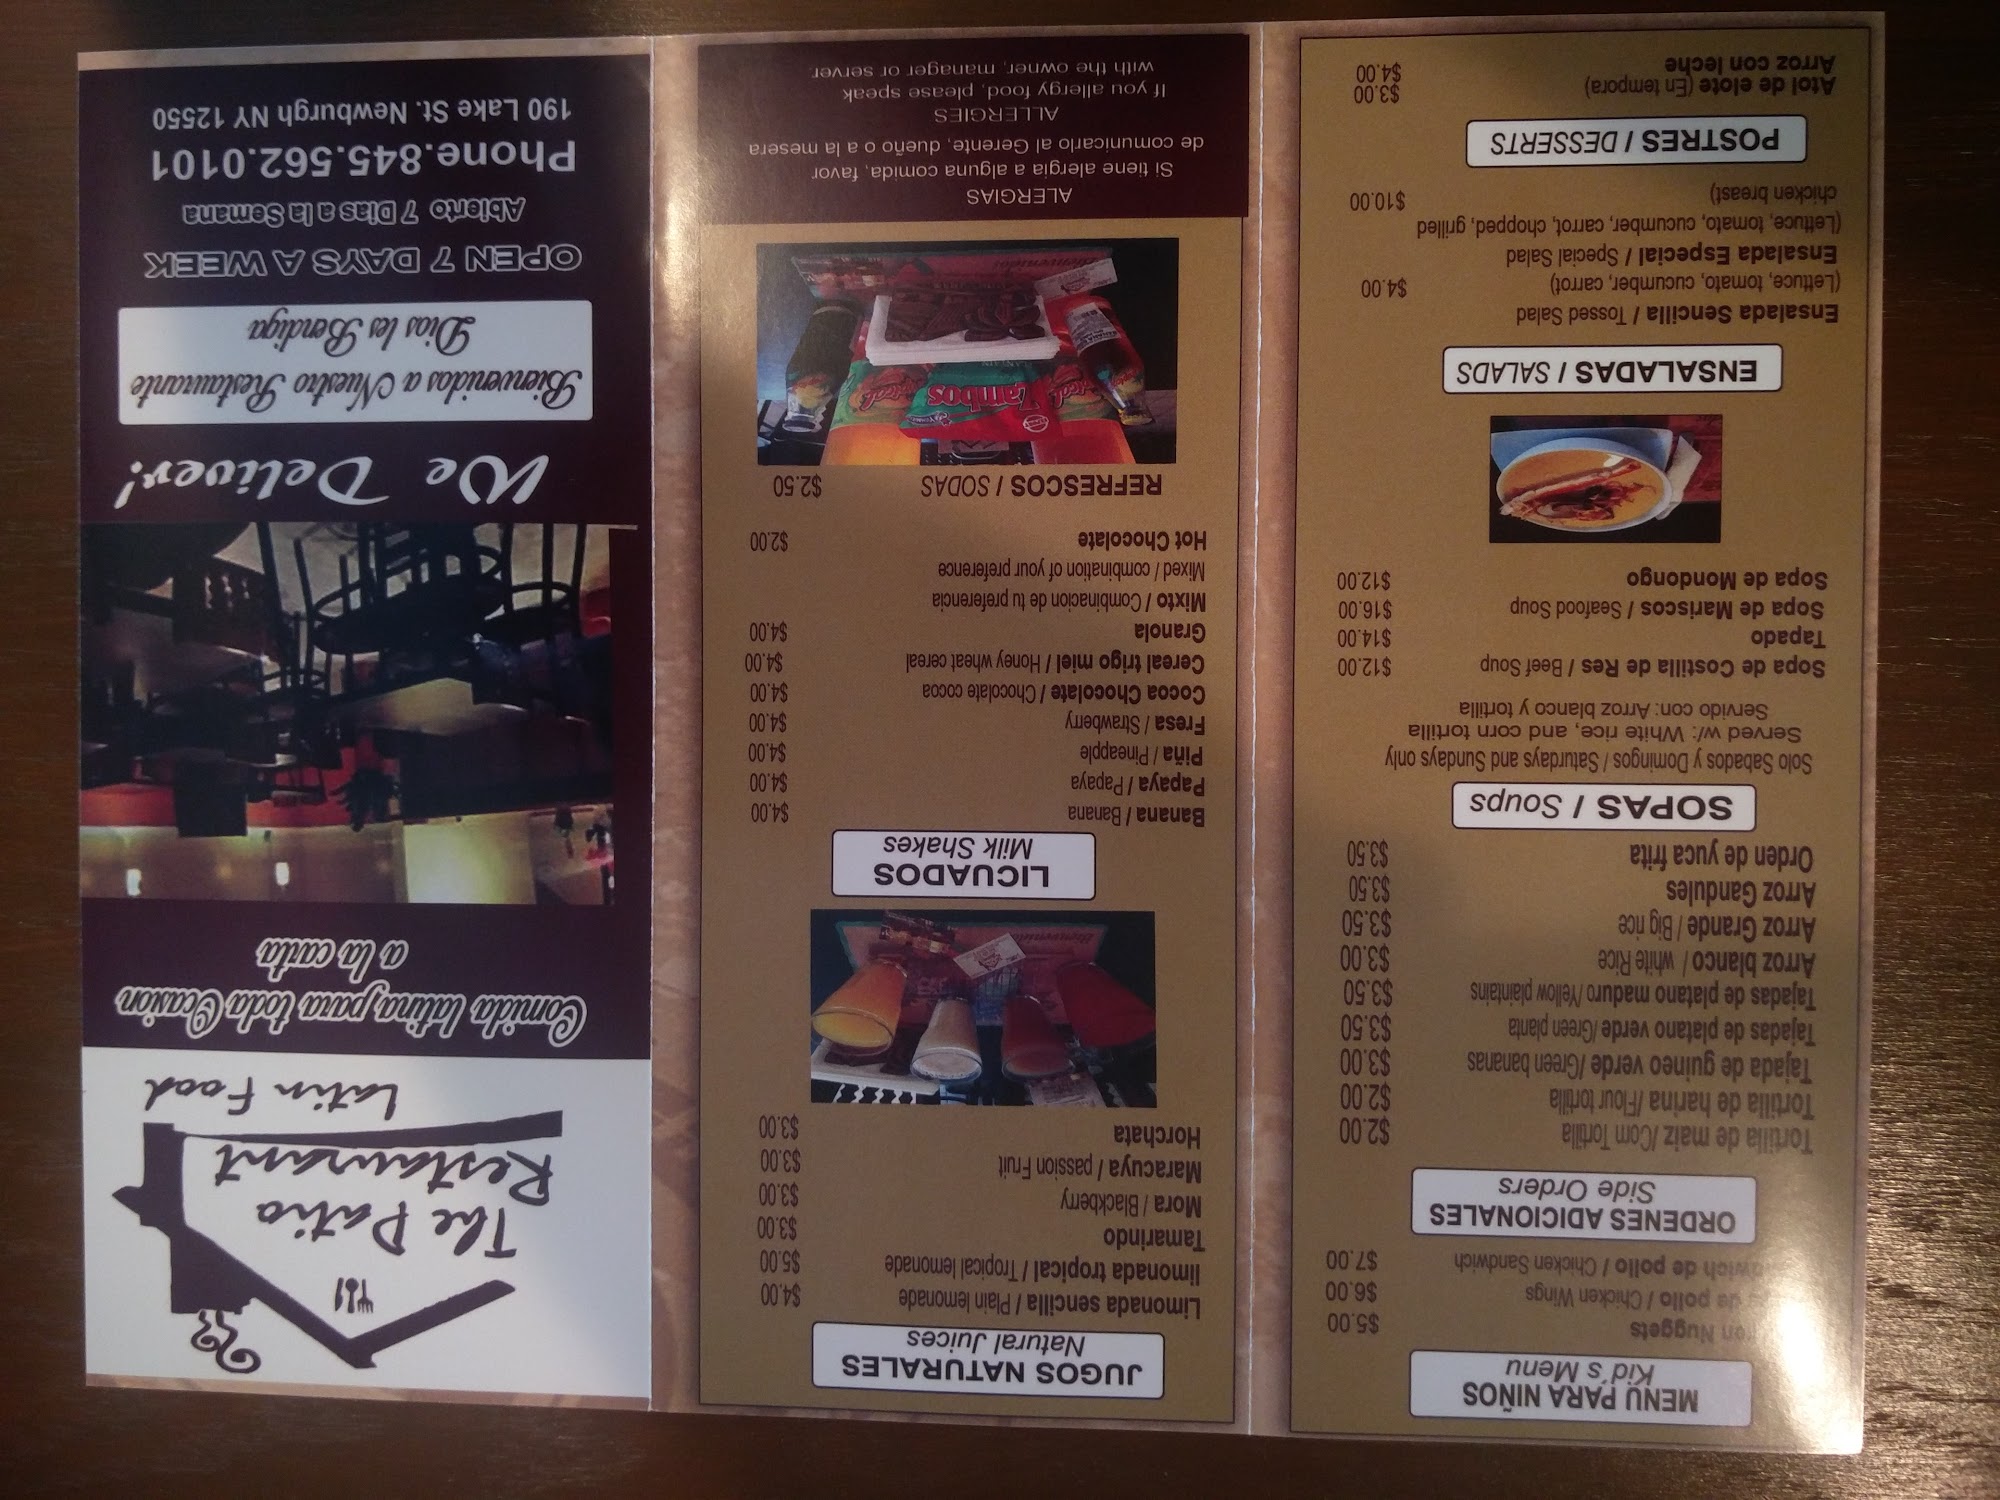 MENU PARA NIÑOS
Kid's Menu
Nuggets $5.00
de pollo / Chicken Wings $6.00
de pollo / Chicken Sandwich $7.00
ORDENES ADICIONALES
Side Orders
Tortilla de maiz/Corn Tortilla $2.00
Tortilla de harina /Flour tortilla $2.00
Tajada de guineo verde /Green bananas $3.00
Tajadas de platano verde /Green planta $3.50
Tajadas de platano maduro /Yellow plaintains $3.50
Arroz blanco / white Rice $3.00
Arroz Grande / Big rice $3.50
Arroz Gandules $3.50
Orden de yuca frita $3.50
SOPAS / Soups
Solo Sabados y Domingos / Saturdays and Sundays only
Served w/: White rice, and corn tortilla
Servido con: Arroz blanco y tortilla
Sopa de Costilla de Res / Beef Soup $12.00
Tapado $14.00
Sopa de Mariscos / Seafood Soup $16.00
Sopa de Mondongo $12.00
ENSALADAS / SALADS
Ensalada Sencilla / Tossed Salad
(Lettuce, tomato, cucumber, carrot) $4.00
Ensalada Especial / Special Salad
(Lettuce, tomato, cucumber, carrot, chopped, grilled
chicken breast) $10.00
POSTRES / DESSERTS
Atol de elote (En tempora) $3.00
Arroz con leche $4.00
JUGOS NATURALES
Natural Juices
Limonada sencilla / Plain lemonade $4.00
limonada tropical / Tropical lemonade $5.00
Tamarindo $3.00
Mora / Blackberry $3.00
Maracuya / passion Fruit $3.00
Horchata $3.00
LICUADOS
Milk Shakes
Banana / Banana $4.00
Papaya / Papaya $4.00
Piña / Pineapple $4.00
Fresa / Strawberry $4.00
Cocoa Chocolate / Chocolate cocoa $4.00
Cereal trigo miel / Honey wheat cereal $4.00
Granola $4.00
Mixto / Combinacion de tu preferencia
Mixed / combination of your preference
Hot Chocolate $2.00
REFRESCOS / SODAS $2.50
Zambos
ALERGIAS
Si tiene alergia a alguna comida, favor
de comunicarlo al Gerente, dueño o a la mesera
ALLERGIES
If you allergy food, please speak
with the owner, manager or server.
The Patio
Restaurant
Latin Food
Comida latina,para toda Ocasion
a la carta
We Deliver!
Bienvenidos a Nuestro Restaurante
Dios les Bendiga
OPEN 7 DAYS A WEEK
Abierto 7 Dias a la Semana
Phone.845.562.0101
190 Lake St. Newburgh NY 12550